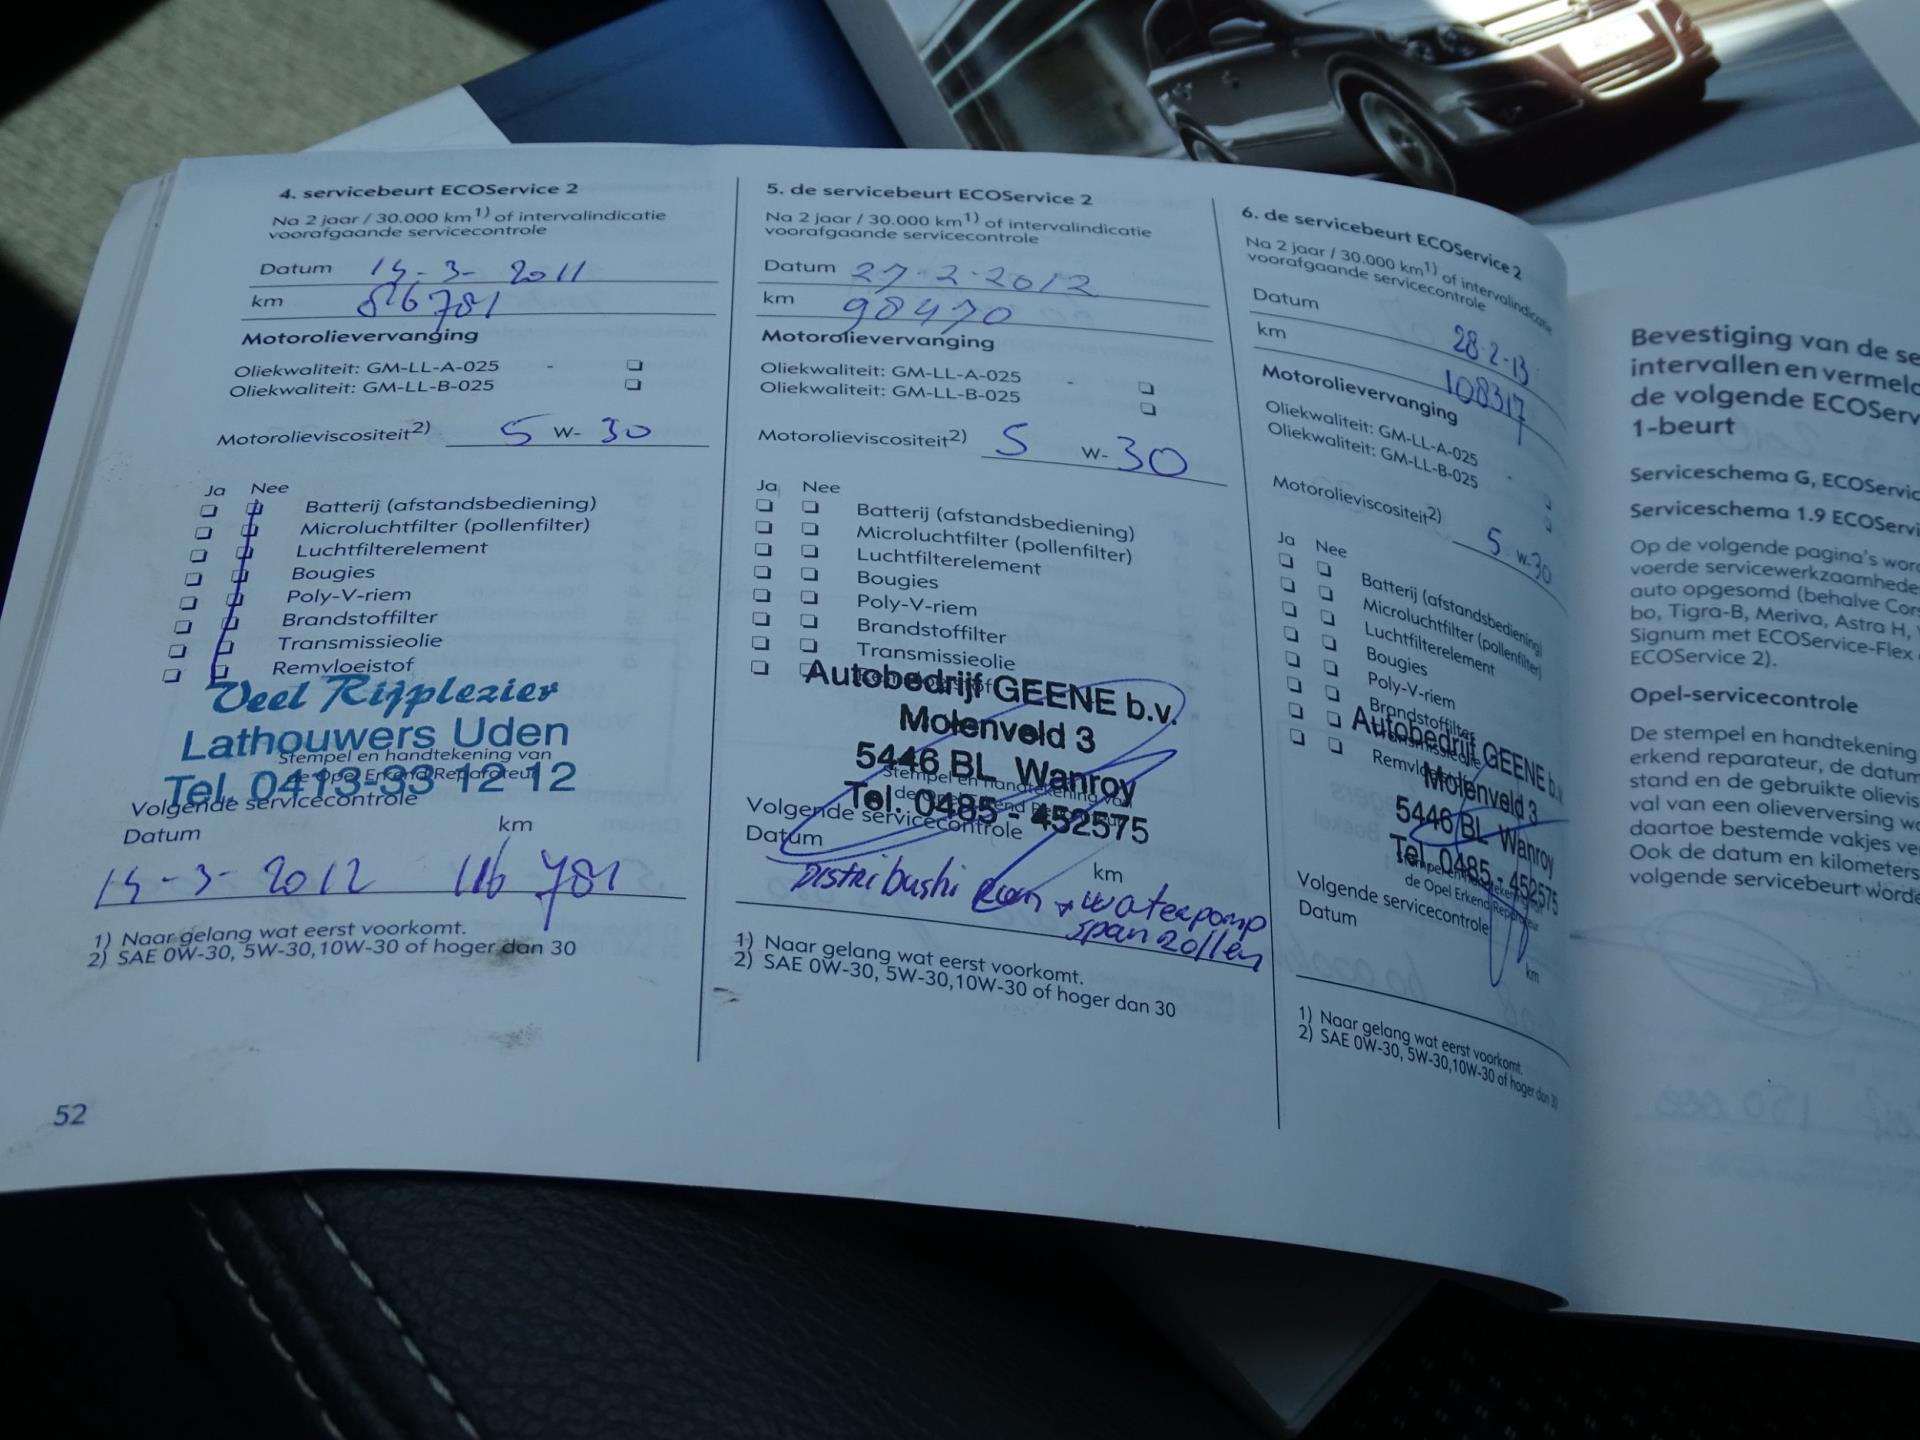 4. servicebeurt ECOService 2
Na 2 jaar / 30.000 km1) of intervalindicatie
voorafgaande servicecontrole
Datum 14-3-2011
km 86781
Motorolievervanging
Oliekwaliteit: GM-LL-A-025 -
Oliekwaliteit: GM-LL-B-025
Motorolieviscositeit2) 5 W- 30
Ja Nee
Batterij (afstandsbediening)
Microluchtfilter (pollenfilter)
Luchtfilterelement
Bougies
Poly-V-riem
Brandstoffilter
Transmissieolie
Remvloeistof
Veel Rijplezier
Lathouwers Uden
Stempel en handtekening van
de Opel Erkend Reparateur
Tel. 0413-33 12 12
Volgende servicecontrole
Datum km
14-3-2012 116781
1) Naar gelang wat eerst voorkomt.
2) SAE 0W-30, 5W-30,10W-30 of hoger dan 30
52
5. de servicebeurt ECOService 2
Na 2 jaar / 30.000 km1) of intervalindicatie
voorafgaande servicecontrole
Datum 27-2-2012
km 98470
Motorolievervanging
Oliekwaliteit: GM-LL-A-025 -
Oliekwaliteit: GM-LL-B-025
Motorolieviscositeit2) 5 W- 30
Ja Nee
Batterij (afstandsbediening)
Microluchtfilter (pollenfilter)
Luchtfilterelement
Bougies
Poly-V-riem
Brandstoffilter
Transmissieolie
Autobedrijf GEENE b.v.
Molenveld 3
5446 BL Wanroy
Stempel en handtekening van
Tel. 0485 - 452575
Volgende servicecontrole
Datum km
Distribushi riem + waterpomp
spanrollen
1) Naar gelang wat eerst voorkomt.
2) SAE 0W-30, 5W-30,10W-30 of hoger dan 30
6. de servicebeurt ECOService 2
Na 2 jaar / 30.000 km1) of intervalindicatie
voorafgaande servicecontrole
Datum 28-2-13
km 108317
Motorolievervanging
Oliekwaliteit: GM-LL-A-025 -
Oliekwaliteit: GM-LL-B-025
Motorolieviscositeit2) 5 W-30
Ja Nee
Batterij (afstandsbediening)
Microluchtfilter (pollenfilter)
Luchtfilterelement
Bougies
Poly-V-riem
Brandstoffilter
Transmissieolie
Autobedrijf GEENE b.v.
Molenveld 3
5446 BL Wanroy
Tel. 0485 - 452575
de Opel Erkend Reparateur
Volgende servicecontrole
Datum km
1) Naar gelang wat eerst voorkomt.
2) SAE 0W-30, 5W-30,10W-30 of hoger dan 30
Bevestiging van de se
intervallen en vermeld
de volgende ECOServ
1-beurt
Serviceschema G, ECOServic
Serviceschema 1.9 ECOServi
Op de volgende pagina's word
voerde servicewerkzaamhede
auto opgesomd (behalve Cors
bo, Tigra-B, Meriva, Astra H,
Signum met ECOService-Flex
ECOService 2).
Opel-servicecontrole
De stempel en handtekening
erkend reparateur, de datum
stand en de gebruikte olievis
val van een olieverversing wo
daartoe bestemde vakjes ve
Ook de datum en kilometers
volgende servicebeurt worde